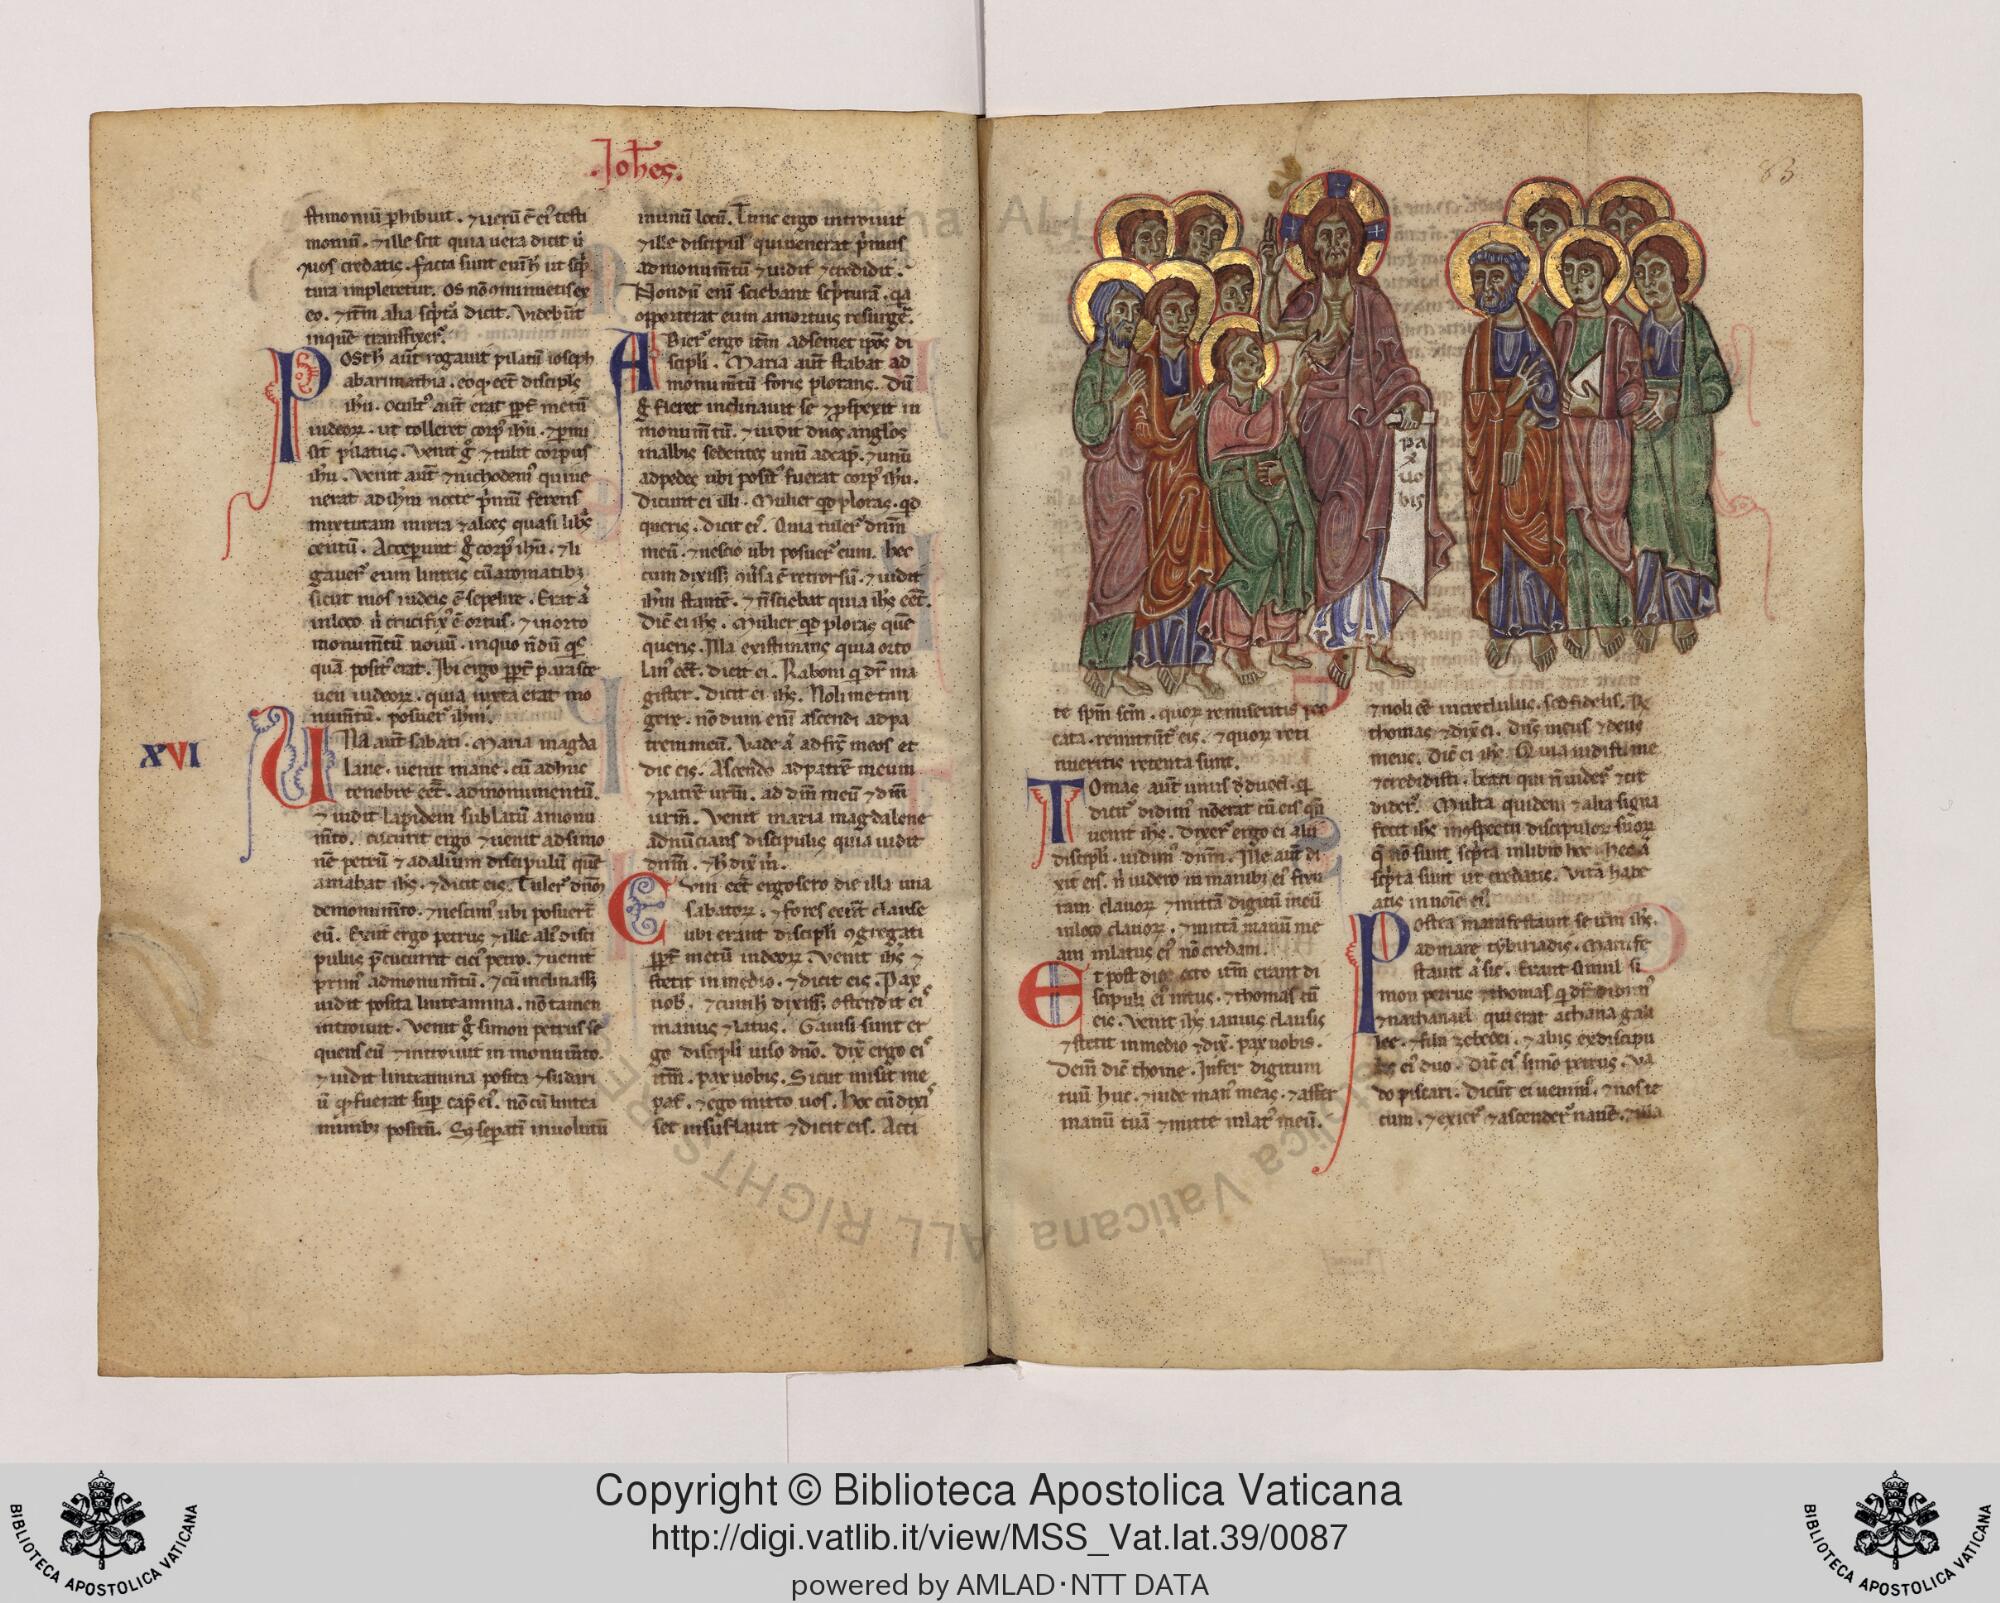 .Joh̄es.
stimoniū phibuit. ⁊ uerū ē ei' testi
moniū. ⁊ ille scit quia uera dicit ut
⁊ uos credatis. facta sunt eni h̄ ut sc̄p
tura impleretur. Os nō ɔminuetis ex
eo. ⁊ itm̄ alia sc̄pta dicit. Videbūt
inquē transfixer̄.
Posth̄ aūt rogauit pilatū ioseph
abarimathia. eo q eēt disciplꝰ
ih̄u. occultꝰ aūt erat ppt̄ metū
iudeoꝝ. ut tolleret corpꝰ ih̄u. ⁊ pmi
sit pilatus. Venit g̊ ⁊ tulit corpus
ih̄u. Venit aūt ⁊ nichodemꝰ qui ue
nerat ad ih̄m nocte p̄mū ferens
mixturam mirra ⁊ aloes quasi libᵃs
centū. Acceperunt g̊ corpꝰ ih̄u. ⁊ li
gauer̄ eum linteis cū aromatibꝫ
sicut mos iudeis ē sepelire. Erat a̅
in loco ū crucifixꝰ ē ortus. ⁊ in orto
monum̄tū nouū. in quo n̄dū qⁱsꝗ
quā positꝰ erat. Ibi ergo ppt̄ parasce
uen iudeoꝝ. quia iuxta erat mo
num̄tū. posuer̄ ih̄m.
XVI
Una aūt sabati. Maria magda
lane. uenit mane. cū adhuc
tenebre eēt. ad monumentū.
⁊ uidit lapidem sublatū a monu
m̄to. cucurit ergo ⁊ uenit ad simo
nē petrū ⁊ ad alium discipulū quē
amabat ih̄s. ⁊ dicit eis. Tuler̄ dn̄m
de monum̄to. ⁊ nescimꝰ ubi posuer̄t
eū. Exiit ergo petrus ⁊ ille aliꝰ disci
pulus p̄cucurrit citiꝰ petro. ⁊ uenit
primꝰ ad monum̄tū. ⁊ cū inclinass̄ꝫ
uidit posita linteamina. nō tamen
introiuit. Venit g̊ simon petrus se
quens eū ⁊ introiuit in monum̄to.
⁊ uidit linteamina posita ⁊ sudari
ū qd̄ fuerat sup capꝰ ei'. nō cū lintea
minibꝰ positū. Sꝫ sepatī inuolutū
in unū locū. Tunc ergo introiuit
⁊ ille discipulꝰ qui uenerat p̄mus
ad monum̄tū ⁊ uidit ⁊ credidit.
Nondū enī sciebant sc̄pturā. qa
opporterat eum a mortuis resurge̅.
Abier̄ ergo itm̄ ad semet ip̄os di
scipli. Maria aūt stabat ad
monum̄tū foris plorans. Dū
g̊ fleret inclinauit se ⁊ pspexit in
monum̄tū. ⁊ uidit duos angl̄os
in albis sedentes unū ad cap̄. ⁊ unū
ad pedes ubi positꝰ fuerat corpꝰ ih̄u.
Dicunt ei illi. Mulier qd ploras. qd
queris. dicit ei'. Quia tuler̄ dn̄m
meū. ⁊ nescio ubi posuer̄ eum. hec
cum dixiss̄ꝫ ɔuersa ē retrorsū. ⁊ uidit
ih̄m stantē. ⁊ n̄ sciebat quia ih̄s eēt.
Dic̄ ei ih̄s. Mulier qd ploras quē
queris. Illa existimans quia orto
lanꝰ eēt. dicit ei. Raboni q dr̄ ma
gister. Dicit ei ih̄s. Noli me tan
gere. nō dum enī ascendi ad pa
trem meū. Vade a̅ ad fr̄s meos et
dic eis. Ascendo ad patrē meum
⁊ patrē ur̄m. ad dm̄ meū ⁊ dm̄
ur̄m. Venit maria magdalene
adnūcians discipulis quia uidit
dn̄m. ⁊ h̄ dix̄ m̄.
Cum eēt ergo sero die illa una
sabatoꝝ. ⁊ fores eēnt clause
ubi erant discipli ɔgregati
ppt̄ metū iudeoꝝ. Venit ih̄s ⁊
stetit in medio. ⁊ dicit eis. Pax
uob̄. ⁊ cum h̄ dixiss̄ꝫ ostendit eiˢ
manus ⁊ latus. Gauisi sunt er
go discipli uiso dn̄o. Dix̄ ergo eiˢ
itm̄. pax uobis. Sicut misit me
pat̄. ⁊ ego mitto uos. hec cū dixiˢ
set insuflauit ⁊ dicit eis. Acci
83
pa
x
uo
bis
te sp̄m sc̄m. quoꝝ remiseritis pec
cata. remittūt eis. ⁊ quoꝝ reti
nueritis retenta sunt.
Tomas aūt unus d̄ duod̄. q
dicitꝰ didimꝰ nō erat cū eis qn̄
uenit ih̄s. Dixer̄ ergo ei alii
discipli. uidimꝰ dn̄m. Ille aūt di
xit eis. n̄ uidero in manibꝫ eiꝰ fixu
ram clauoꝝ ⁊ mittā digitū meū
in loco clauoꝝ. ⁊ mittā manū me
am in latus eiꝰ nō credam.
Et post dies octo itm̄ erant di
scipuli eiꝰ intus. ⁊ thomas cū
eis. Venit ih̄s ianuis clausis
⁊ stetit in medio ⁊ dix̄. pax uobis.
Dein̄ dic̄ thome. Infer digitum
tuū huc. ⁊ uide manꝰ meas. ⁊ affer
manū tuā ⁊ mitte in latꝰ meū.
⁊ noli eē incredulus. sed fidelis. R̄
thomas ⁊ dix̄ ei. Dn̄s meus ⁊ deus
meus. Dic̄ ei ih̄s. Quia uidisti me
⁊ credidisti. beati qui n̄ uider̄ ⁊ cre
dider̄. Multa quidem ⁊ alia signa
fecit ih̄s in ɔspectu discipuloꝝ suoꝝ
q̄ nō sunt sc̄pta in libro hoc. hec a̅
sc̄pta sunt ut credatis. Vitā habe
atis in noīe eiꝰ.
Postea manifestauit se itm̄ ih̄s.
ad mare tyburiadis. Manife
stauit a̅ sic. Erant simul si
mon petrus ⁊ thomas q dr̄ didimꝰ
⁊ nathanael qui erat achana gali
lee. ⁊ filii zebedei. ⁊ aliis ex discipu
lis eiꝰ duo. Dic̄ eiˢ simō petrus. Va
do piscari. Dicūt ei uenimꝰ. ⁊ nos te
cum. ⁊ exier̄ ⁊ ascender̄ nauē. ⁊ illa
Copyright © Biblioteca Apostolica Vaticana
http://digi.vatlib.it/view/MSS_Vat.lat.39/0087
powered by AMLAD·NTT DATA
BIBLIOTECA APOSTOLICA VATICANA
BIBLIOTECA APOSTOLICA VATICANA